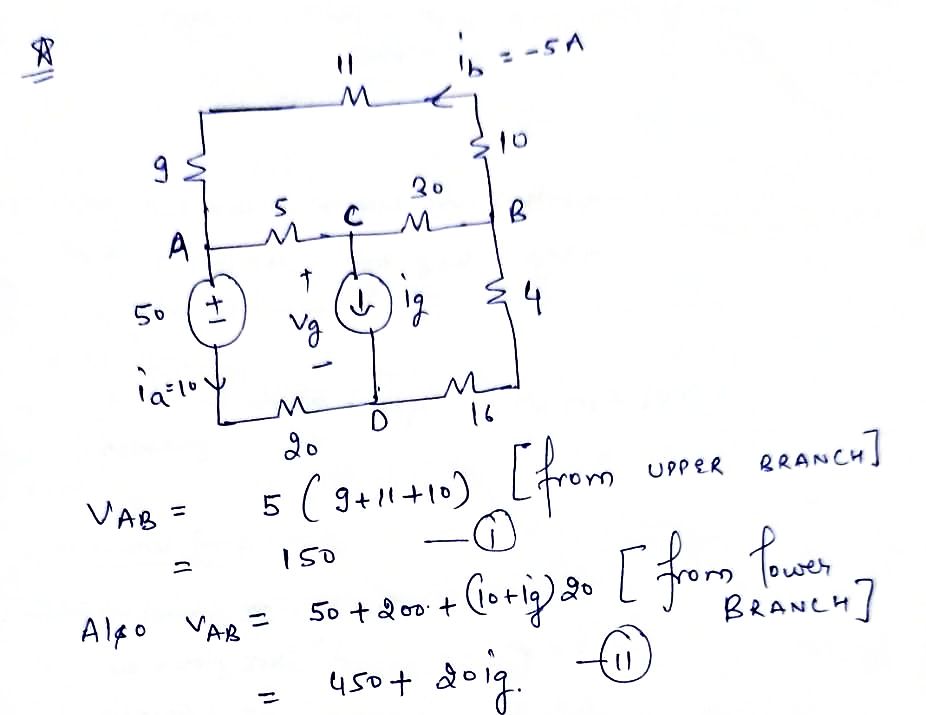 11
ib = -5A
9
10
5
C
30
A
B
50
+
-
+
vg
-
ig
4
ia=10
20
D
16
VAB = 5 (9+11+10) [from UPPER BRANCH]
= 150 — (i)
Also VAB = 50 + 200 + (10+ig) 20 [from lower BRANCH]
= 450 + 20ig. — (ii)